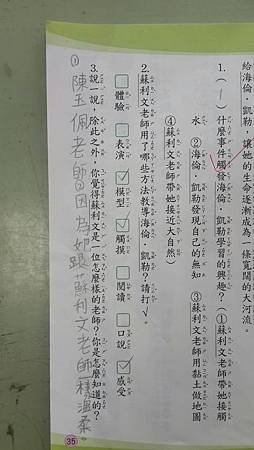 給海倫．凱勒，讓她的生命逐漸成為一條寬闊的大河流。
1.（1）什麼事件觸發海倫．凱勒學習的興趣？（①蘇利文老師帶她接觸
水 ②海倫．凱勒發現自己的無知 ③蘇利文老師用黏土做地圖
④蘇利文老師帶她接近大自然）
2.蘇利文老師用了哪些方法教導海倫．凱勒？請打✓。
□體驗 □表演 ☑模型 ☑觸摸 □閱讀 □口說 ☑感受
3.說一說，除此之外，你覺得蘇利文是一位怎麼樣的老師？你是怎麼知道的？
①陳玉佩老師因為她跟蘇利文老師一樣溫柔。
35